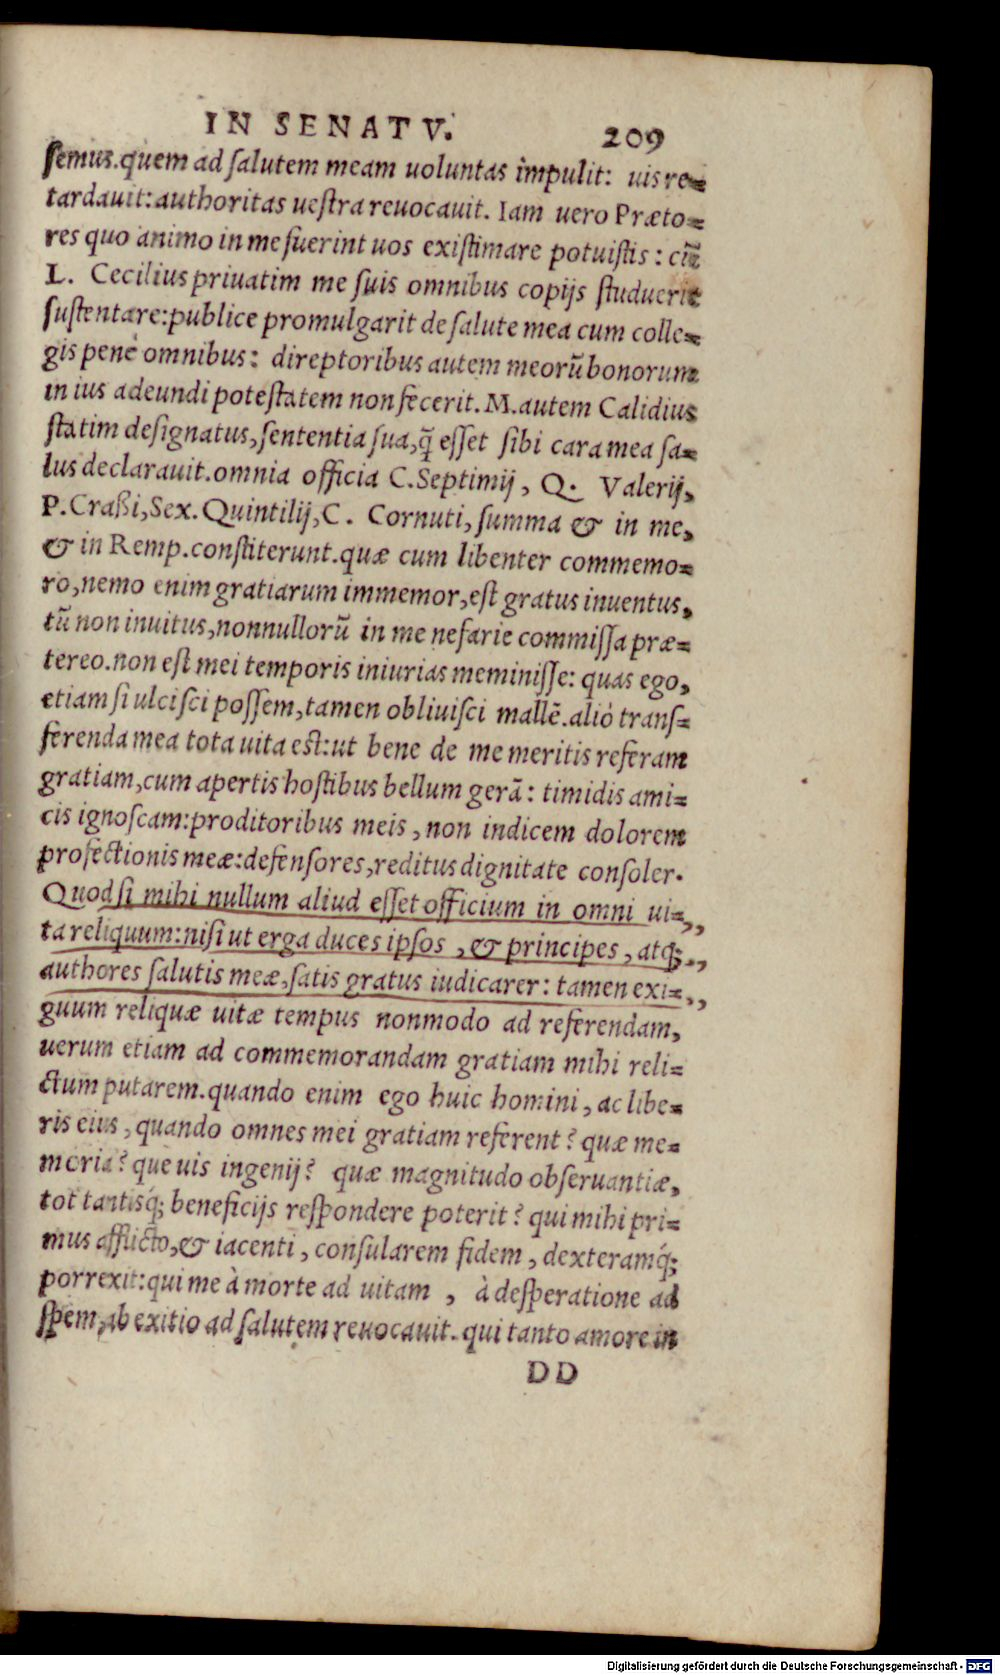 IN SENATV. 209
semus.quem ad ſalutem meam uoluntas impulit: uis re=
tardauit: authoritas ueſtra reuocauit. Iam uero Præto=
res quo animo in me fuerint uos exiſtimare potuiſtis : cũ
L. Cecilius priuatim me ſuis omnibus copijs ſtuduerit
ſuſtentare: publice promulgarit de ſalute mea cum colle=
gis penè omnibus: direptoribus autem meorũ bonorum
in ius adeundi poteſtatem non fecerit. M. autem Calidius
ſtatim deſignatus, ſententia ſua, q̃ eſſet ſibi cara mea ſa=
lus declarauit. omnia officia C. Septimij, Q. Valerij,
P. Craßi, Sex. Quintilij, C. Cornuti, ſumma & in me,
& in Remp. conſtiterunt. quæ cum libenter commemo=
ro, nemo enim gratiarum immemor, eſt gratus inuentus,
tũ non inuitus, nonnullorũ in me nefarie commiſſa præ=
tereo. non eſt mei temporis iniurias meminiſſe: quas ego,
etiam ſi ulciſci poſſem, tamen obliuiſci mallẽ. aliò tranſ=
ferenda mea tota uita eſt: ut bene de me meritis referam
gratiam, cum apertis hoſtibus bellum gerã: timidis ami=
cis ignoſcam: proditoribus meis, non indicem dolorem
profectionis meæ: defenſores, reditus dignitate conſoler.
Quod ſi mihi nullum aliud eſſet officium in omni ui= ,,
ta reliquum: niſi ut erga duces ipſos, & principes, atq; ,,
authores ſalutis meæ, ſatis gratus iudicarer: tamen exi= ,,
guum reliquæ uitæ tempus nonmodo ad referendam,
uerum etiam ad commemorandam gratiam mihi reli=
ctum putarem. quando enim ego huic homini, ac libe=
ris eius, quando omnes mei gratiam referent? quæ me=
moria? que uis ingenij? quæ magnitudo obſeruantiæ,
tot tantisq́; beneficijs reſpondere poterit? qui mihi pri=
mus afflicto, & iacenti, conſularem fidem, dexteramq́;
porrexit: qui me à morte ad uitam, à deſperatione ad
ſpem, ab exitio ad ſalutem reuocauit. qui tanto amore in
DD
Digitalisierung gefördert durch die Deutsche Forschungsgemeinschaft - DFG